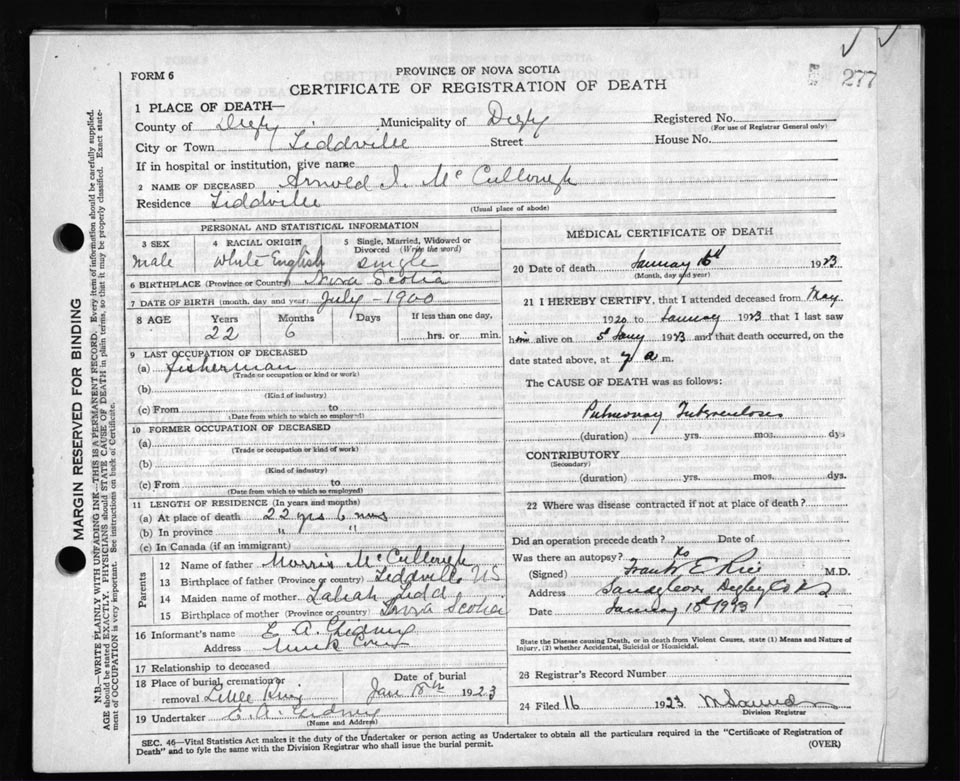 FORM 6
PROVINCE OF NOVA SCOTIA
CERTIFICATE OF REGISTRATION OF DEATH
277
1 PLACE OF DEATH—
County of Digby Municipality of Digby Registered No.
(For use of Registrar General only)
City or Town Tiddville Street House No.
If in hospital or institution, give name
2 NAME OF DECEASED Arnold I. McCullough
Residence Tiddville
(Usual place of abode)
PERSONAL AND STATISTICAL INFORMATION
3 SEX
male
4 RACIAL ORIGIN
White English
5 Single, Married, Widowed or Divorced (Write the word)
single
6 BIRTHPLACE (Province or Country) Nova Scotia
7 DATE OF BIRTH (month, day and year) July - 1900
8 AGE Years Months Days If less than one day,
22 6 hrs. or min.
9 LAST OCCUPATION OF DECEASED
(a) fisherman
(Trade or occupation or kind or work)
(b)
(Kind of industry)
(c) From to
(Date from which to which so employed)
10 FORMER OCCUPATION OF DECEASED
(a)
(Trade or occupation or kind of work)
(b)
(Kind of industry)
(c) From to
(Date from which to which so employed)
11 LENGTH OF RESIDENCE (In years and months)
(a) At place of death 22 yrs 6 mos
(b) In province " "
(c) In Canada (if an immigrant)
Parents
12 Name of father Morris McCullough
13 Birthplace of father (Province or country) Tiddville NS
14 Maiden name of mother Tidd
15 Birthplace of mother (Province or country) Nova Scotia
16 Informant's name E. A.
Address
17 Relationship to deceased
18 Place of burial, cremation or removal Little River
Date of burial
Jan 8th 1923
19 Undertaker E. A.
(Name and Address)
MEDICAL CERTIFICATE OF DEATH
20 Date of death January 1923
(Month, day and year)
21 I HEREBY CERTIFY, that I attended deceased from May
1920 to January 1923 that I last saw
him alive on 5th Jany 1923 and that death occurred, on the
date stated above, at 7 a m.
The CAUSE OF DEATH was as follows:
Pulmonary Tuberculosis
(duration) yrs. mos. dys
CONTRIBUTORY
(Secondary)
(duration) yrs. mos. dys.
22 Where was disease contracted if not at place of death?
Did an operation precede death? Date of
Was there an autopsy? No
(Signed) Frank E Rice M.D.
Address Sandy Cove Digby Co N S
Date January 1923
State the Disease causing Death, or in death from Violent Causes, state (1) Means and Nature of
Injury, (2) whether Accidental, Suicidal or Homicidal.
23 Registrar's Record Number
24 Filed 16 1923
Division Registrar
SEC. 46—Vital Statistics Act makes it the duty of the Undertaker or person acting as Undertaker to obtain all the particulars required in the "Certificate of Registration of
Death" and to fyle the same with the Division Registrar who shall issue the burial permit. (OVER)
MARGIN RESERVED FOR BINDING
N.B.—WRITE PLAINLY WITH UNFADING INK—THIS IS A PERMANENT RECORD. Every item of information should be carefully supplied.
AGE should be stated EXACTLY. PHYSICIANS should STATE CAUSE OF DEATH in plain terms, so that it may be properly classified. Exact state-
ment of OCCUPATION is very important. See instructions on back of Certificate.